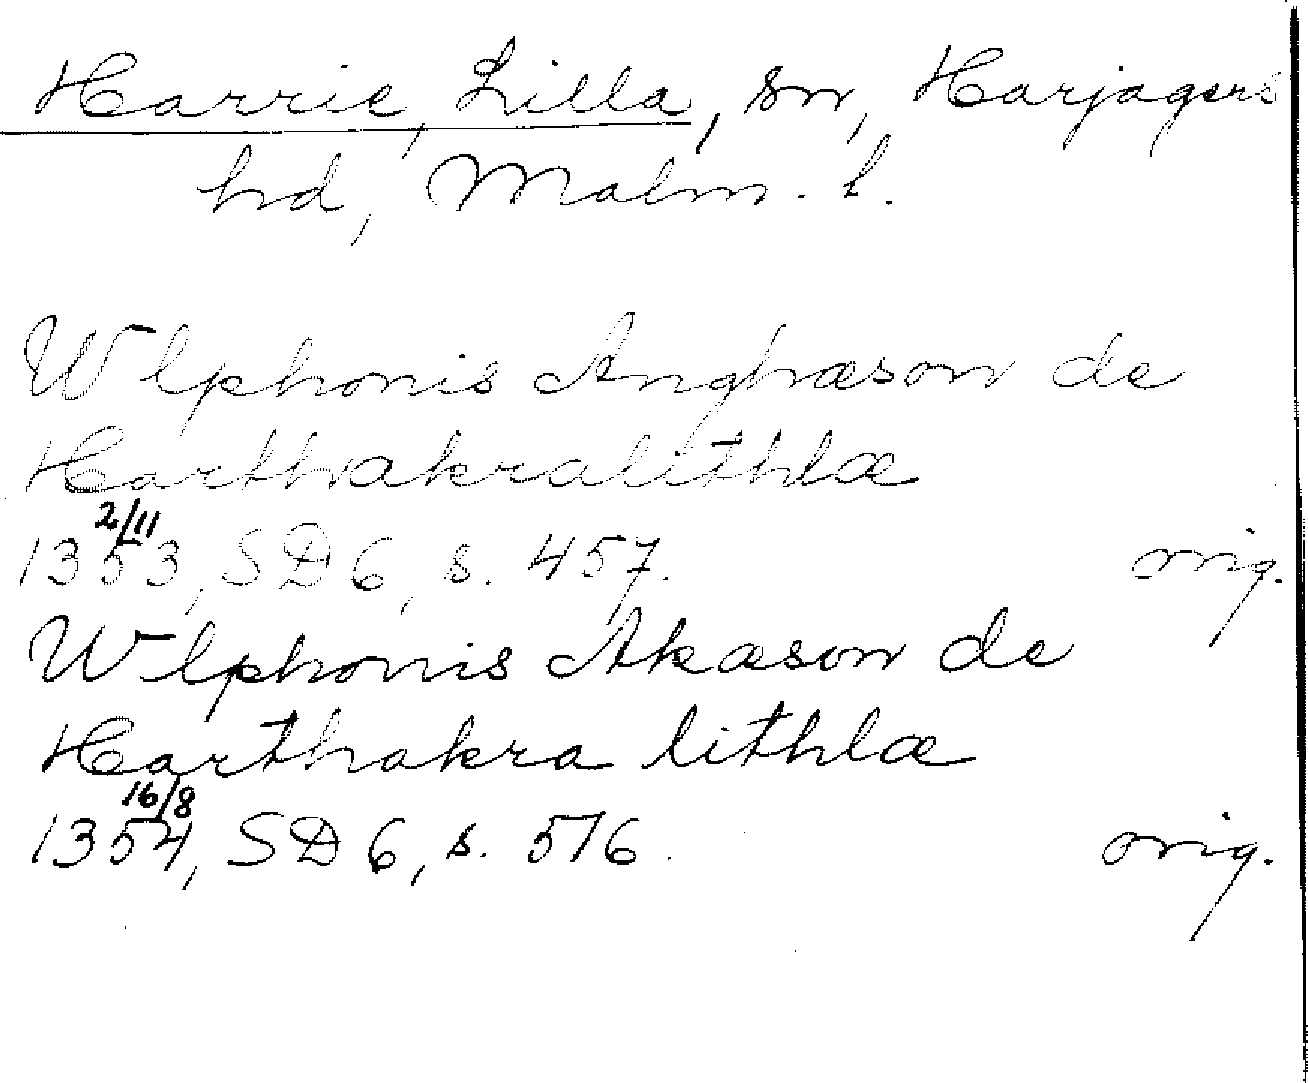 Harrie, Lilla, sn, Harjagers
hd, Malm. l.
Wlphonis Anghæson de
Harthakralithlæ
2/11
1353, SD 6, s. 457. orig.
Wlphonis Akæson de
Harthakra lithlæ
16/8
1354, SD 6, s. 576. orig.